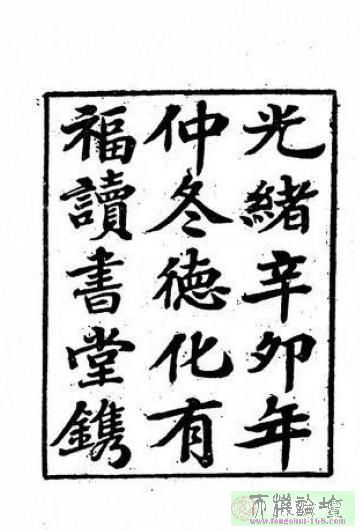 光緒辛卯年
仲冬德化有
福讀書堂鐫
www.fengshui-168.com